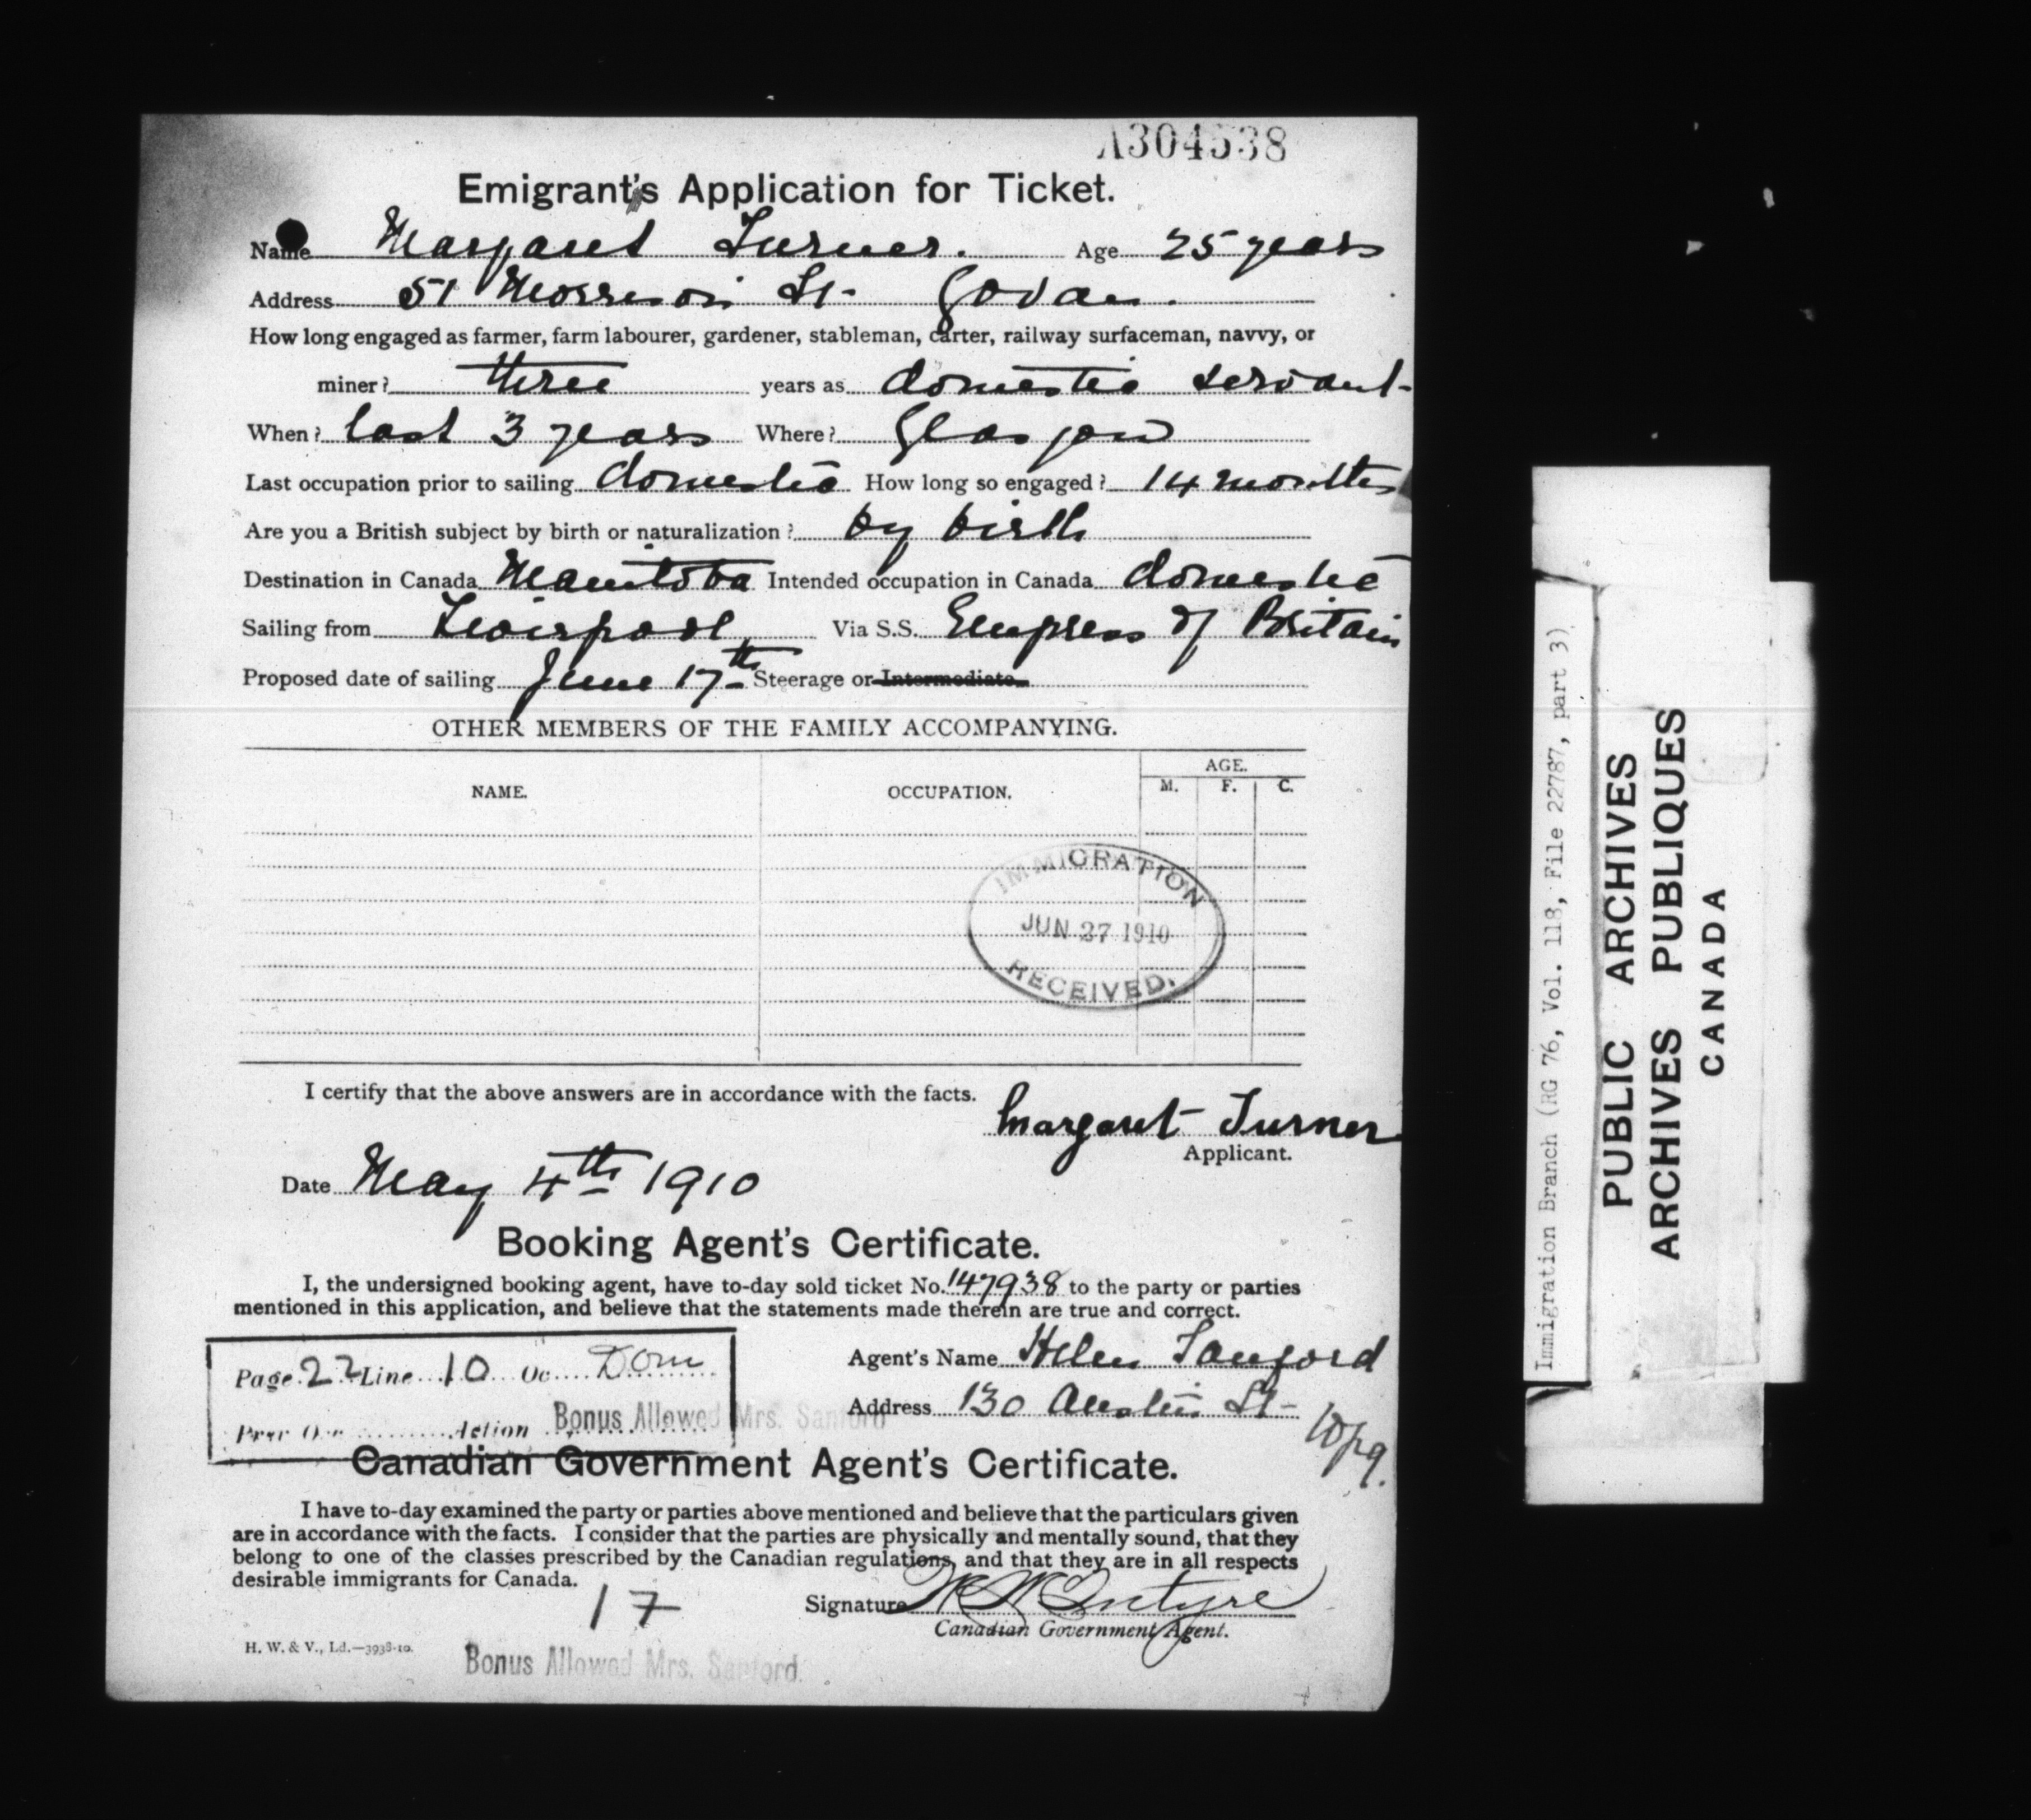 A304538
Emigrant's Application for Ticket.
Name Margaret Turner. Age 25 years
Address 51 Morrison St. Govan.
How long engaged as farmer, farm labourer, gardener, stableman, carter, railway surfaceman, navvy, or
miner? three years as domestic servant
When? last 3 years Where? Glasgow
Last occupation prior to sailing domestic How long so engaged? 14 months
Are you a British subject by birth or naturalization? by birth
Destination in Canada Manitoba Intended occupation in Canada domestic
Sailing from Liverpool, Via S.S. Empress of Britain
Proposed date of sailing June 17th Steerage or Intermediate
OTHER MEMBERS OF THE FAMILY ACCOMPANYING.
NAME. OCCUPATION. AGE.
M. F. C.
IMMIGRATION
JUN 27 1910
RECEIVED.
I certify that the above answers are in accordance with the facts.
Margaret Turner
Applicant.
Date May 4th 1910
Booking Agent's Certificate.
I, the undersigned booking agent, have to-day sold ticket No. 147938 to the party or parties
mentioned in this application, and believe that the statements made therein are true and correct.
Agent's Name Helen Sanford
Address 130 Austin St-
Wpg.
Page 22 Line 10 Oc Dom
Prev Oc Action Bonus Allowed Mrs. Sanford
Canadian Government Agent's Certificate.
I have to-day examined the party or parties above mentioned and believe that the particulars given
are in accordance with the facts. I consider that the parties are physically and mentally sound, that they
belong to one of the classes prescribed by the Canadian regulations, and that they are in all respects
desirable immigrants for Canada.
17
Signature
Canadian Government Agent.
H. W. & V., Ld.—3938-10.
Bonus Allowed Mrs. Sanford.
Immigration Branch (RG 76, Vol. 118, File 22787, part 3)
PUBLIC ARCHIVES
ARCHIVES PUBLIQUES
CANADA